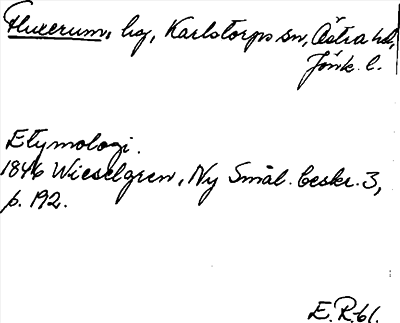 Fluxerum, hg, Karlstorps sn, Östra hd,
Jönk. l.
Etymologi.
1846 Wieselgren, Ny Smål. beskr. 3,
p. 192.
E. R-bl.